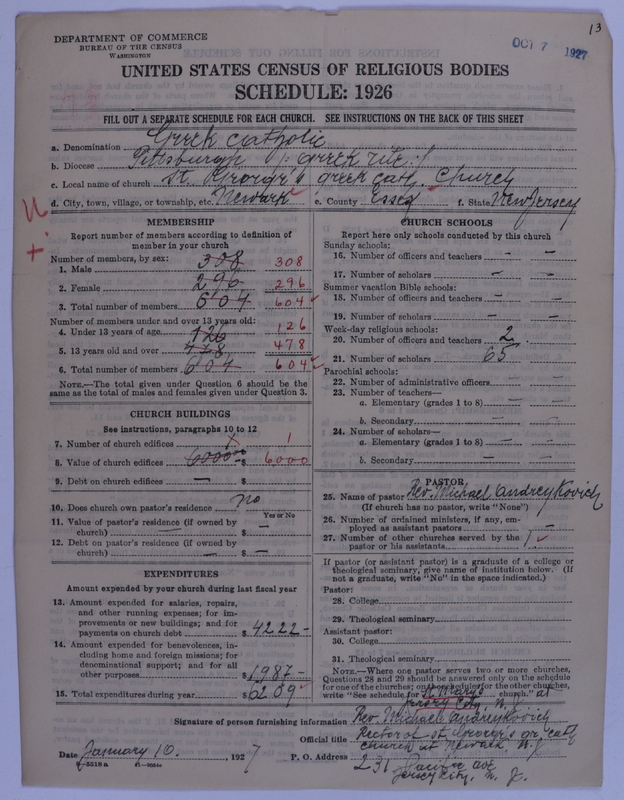 13
DEPARTMENT OF COMMERCE
BUREAU OF THE CENSUS
WASHINGTON
OCT 7 1927
UNITED STATES CENSUS OF RELIGIOUS BODIES
SCHEDULE: 1926
FILL OUT A SEPARATE SCHEDULE FOR EACH CHURCH. SEE INSTRUCTIONS ON THE BACK OF THIS SHEET
a. Denomination Greek Catholic
b. Diocese Pittsburgh /: greek rite :/
c. Local name of church St. George's greek cath. church
d. City, town, village, or township, etc. Newark e. County Essex f. State New Jersey
MEMBERSHIP
Report number of members according to definition of
member in your church
Number of members, by sex:
1. Male 308 308
2. Female 296 296
3. Total number of members 604 604
Number of members under and over 13 years old:
4. Under 13 years of age 126 126
5. 13 years old and over 478 478
6. Total number of members 604 604
NOTE.—The total given under Question 6 should be the
same as the total of males and females given under Question 3.
CHURCH BUILDINGS
See instructions, paragraphs 10 to 12
7. Number of church edifices 1 1
8. Value of church edifices 6000 $ 6000
9. Debt on church edifices — $
10. Does church own pastor's residence? no
Yes or No
11. Value of pastor's residence (if owned by
church) — $ —
12. Debt on pastor's residence (if owned by
church) — $ —
EXPENDITURES
Amount expended by your church during last fiscal year
13. Amount expended for salaries, repairs,
and other running expenses; for im-
provements or new buildings; and for
payments on church debt $ 4222 –
14. Amount expended for benevolences, in-
cluding home and foreign missions; for
denominational support; and for all
other purposes $ 1987 –
15. Total expenditures during year $ 6209
CHURCH SCHOOLS
Report here only schools conducted by this church
Sunday schools:
16. Number of officers and teachers – –
17. Number of scholars – –
Summer vacation Bible schools:
18. Number of officers and teachers – –
19. Number of scholars – –
Week-day religious schools:
20. Number of officers and teachers 2
21. Number of scholars 65
Parochial schools:
22. Number of administrative officers – –
23. Number of teachers—
a. Elementary (grades 1 to 8) – –
b. Secondary – –
24. Number of scholars—
a. Elementary (grades 1 to 8) – –
b. Secondary – –
PASTOR
25. Name of pastor Rev. Michael Andreykovich
(If church has no pastor, write "None")
26. Number of ordained ministers, if any, em-
ployed as assistant pastors –
27. Number of other churches served by the
pastor or his assistants 1
If pastor (or assistant pastor) is a graduate of a college or
theological seminary, give name of institution below. (If
not a graduate, write "No" in the space indicated.)
Pastor:
28. College
29. Theological seminary
Assistant pastor:
30. College
31. Theological seminary
NOTE.—Where one pastor serves two or more churches,
Questions 28 and 29 should be answered only on the schedule
for one of the churches; on the schedule for the other churches,
write "See schedule for St Mary's church." at
Jersey City, N. J.
Signature of person furnishing information Rev. Michael Andreykovich
Official title Rector of St. George's gr. cath.
church at Newark, N. J.
Date January 10. , 1927 P. O. Address 231 Pacific ave
Jersey City, N. J.